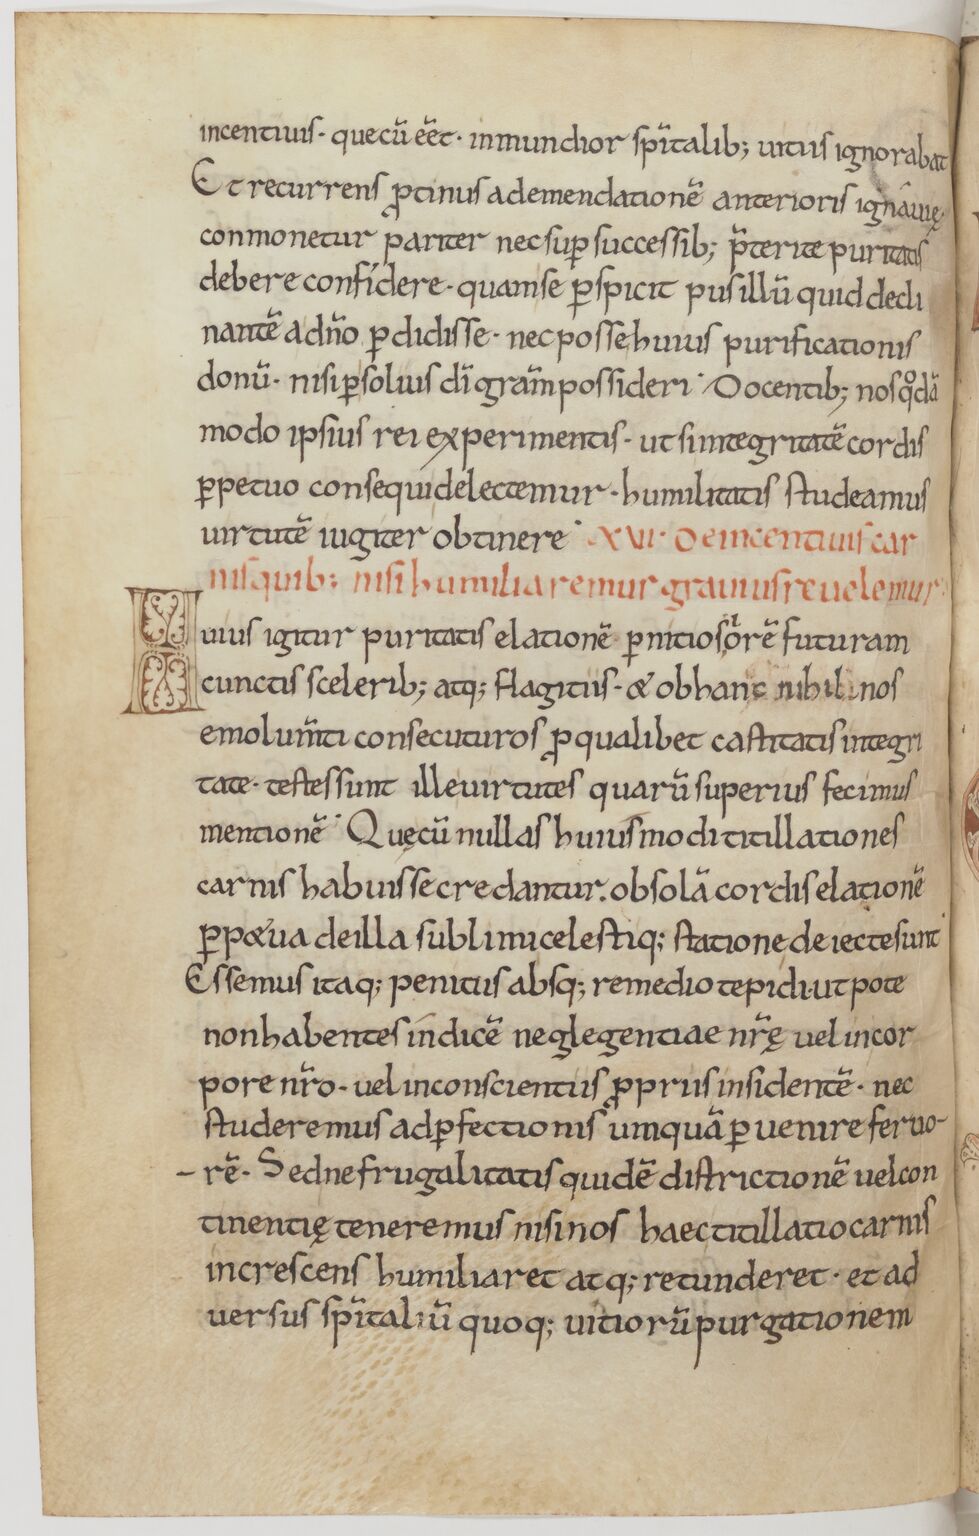 incentiuis· quecū eēt· inmundior spītalib; uitiis ignorabat
Et recurrens ꝓtinus ademendationē anterioris ignauię·
conmonetur pariter necsuꝑ successib; p̄terite puritatis
debere confidere· quamse ꝑspicit pusillū quid decli
nantē adn̄o ꝑdidisse· necpossehuius purificationis
donū· nisiꝑsolius dī gram̄ possideri· Docentib; nos qͦdā
modo ipsius rei experimentis· utsiintegritatē cordis
ꝑpetuo consequidelectemur· humilitatis studeamus
uirtutē iugiter obtinere· XVI· Deincentiuis car
nisquib; nisihumiliaremur grauius
Huius igitur puritatis elationē ꝑnitiosiorē futuram
cunctis scelerib; atq; flagitiis· & obhanc nihilinos
emolum̄ti consecuturos ꝓqualibet castitatisintegri
tate· testessunt illeuirtutes quarū superius fecimus
mentionē· Quęcū nullas huiusmodi titillationes
carnis habuissecredantur· obsolā cordiselationē
ꝑp&ua deilla sublimicelestiq; stationedeiectesunt
Essemus itaq; penitus absq; remedio tepidi· utpote
nonhabentes indicē neglegentiae nr̄ę uel incor
pore nr̄o· uel inconscientiis ꝓpriis insidentē· nec
studeremus adꝑfectionis umquā ꝑuenire feruo-
-rē· Sedne frugalitatis quidē districtionē uelcon
tinentię teneremus nisinos haectitillatio carnis
increscens humiliaret atq; retunderet· et ad
uersus spītaliū quoq; uitiorū purgationem